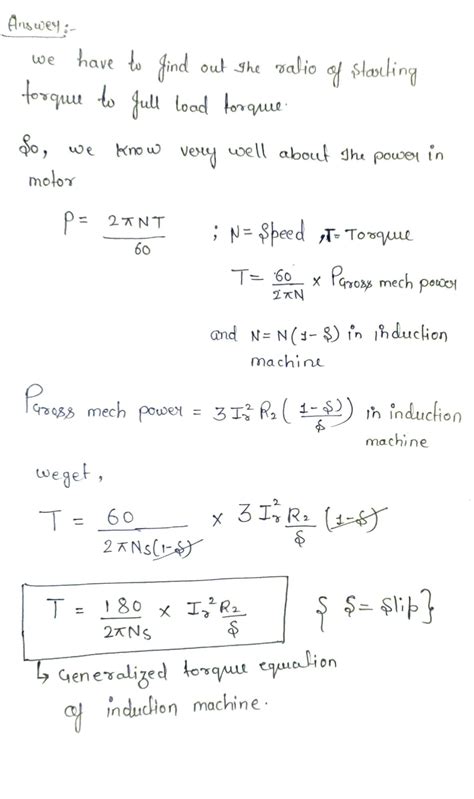 Answer:-
we have to find out the ratio of starting
torque to full load torque.
So, we know very well about the power in
motor
P = 2πNT / 60 ; N = Speed, T = Torque
T = 60 / 2πN × PGross mech power
and N = N(1-S) in induction
machine
PGross mech power = 3 Ir² R2 ( (1-S) / S ) in induction
machine
we get,
T = 60 / 2πNs(1-S) × 3 Ir² R2 / S (1-S)
T = 180 / 2πNs × Ir² R2 / S { S = Slip }
↳ Generalized torque equation
of induction machine.